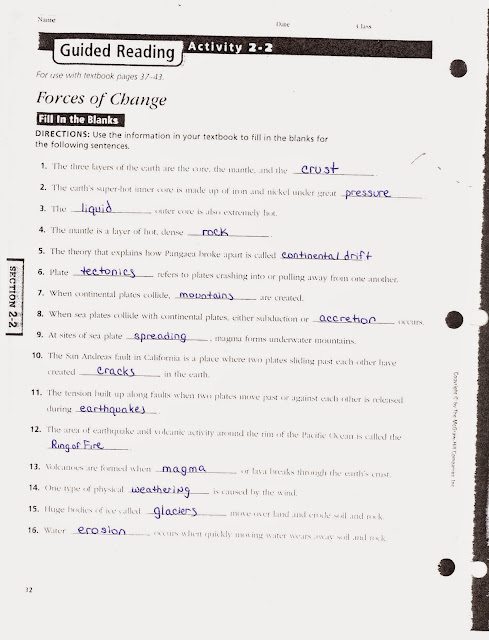 Name Date Class
Guided Reading Activity 2-2
For use with textbook pages 37-43.
Forces of Change
Fill In the Blanks
DIRECTIONS: Use the information in your textbook to fill in the blanks for
the following sentences.
1. The three layers of the earth are the core, the mantle, and the crust.
2. The earth's super-hot inner core is made up of iron and nickel under great pressure.
3. The liquid outer core is also extremely hot.
4. The mantle is a layer of hot, dense rock.
5. The theory that explains how Pangaea broke apart is called continental drift
SECTION 2-2
6. Plate tectonics refers to plates crashing into or pulling away from one another.
7. When continental plates collide, mountains are created.
8. When sea plates collide with continental plates, either subduction or accretion occurs.
9. At sites of sea plate spreading, magma forms underwater mountains.
10. The San Andreas fault in California is a place where two plates sliding past each other have
created cracks in the earth.
11. The tension built up along faults when two plates move past or against each other is released
during earthquakes.
12. The area of earthquake and volcanic activity around the rim of the Pacific Ocean is called the
Ring of Fire.
13. Volcanoes are formed when magma or lava breaks through the earth's crust.
14. One type of physical weathering is caused by the wind.
15. Huge bodies of ice called glaciers move over land and erode soil and rock.
16. Water erosion occurs when quickly moving water wears away soil and rock.
Copyright © by The McGraw-Hill Companies, Inc.
32